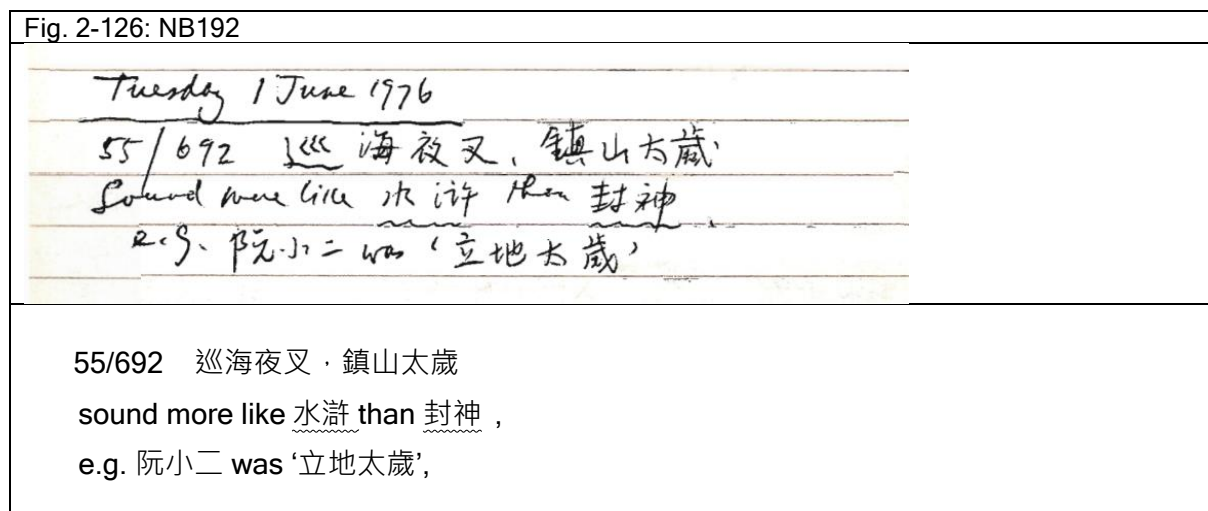 Fig. 2-126: NB192
Tuesday 1 June 1976
55/692 巡海夜叉、鎮山太歲
Sound more like 水滸 than 封神.
e.g. 阮小二 was ‘立地太歲’
55/692 巡海夜叉，鎮山太歲
sound more like 水滸 than 封神 ,
e.g. 阮小二 was ‘立地太歲’,